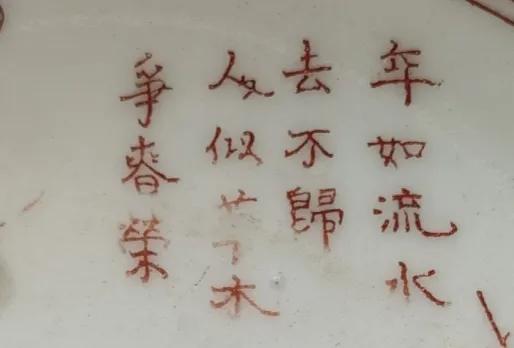 年如流水
去不歸
人似草木
爭春榮